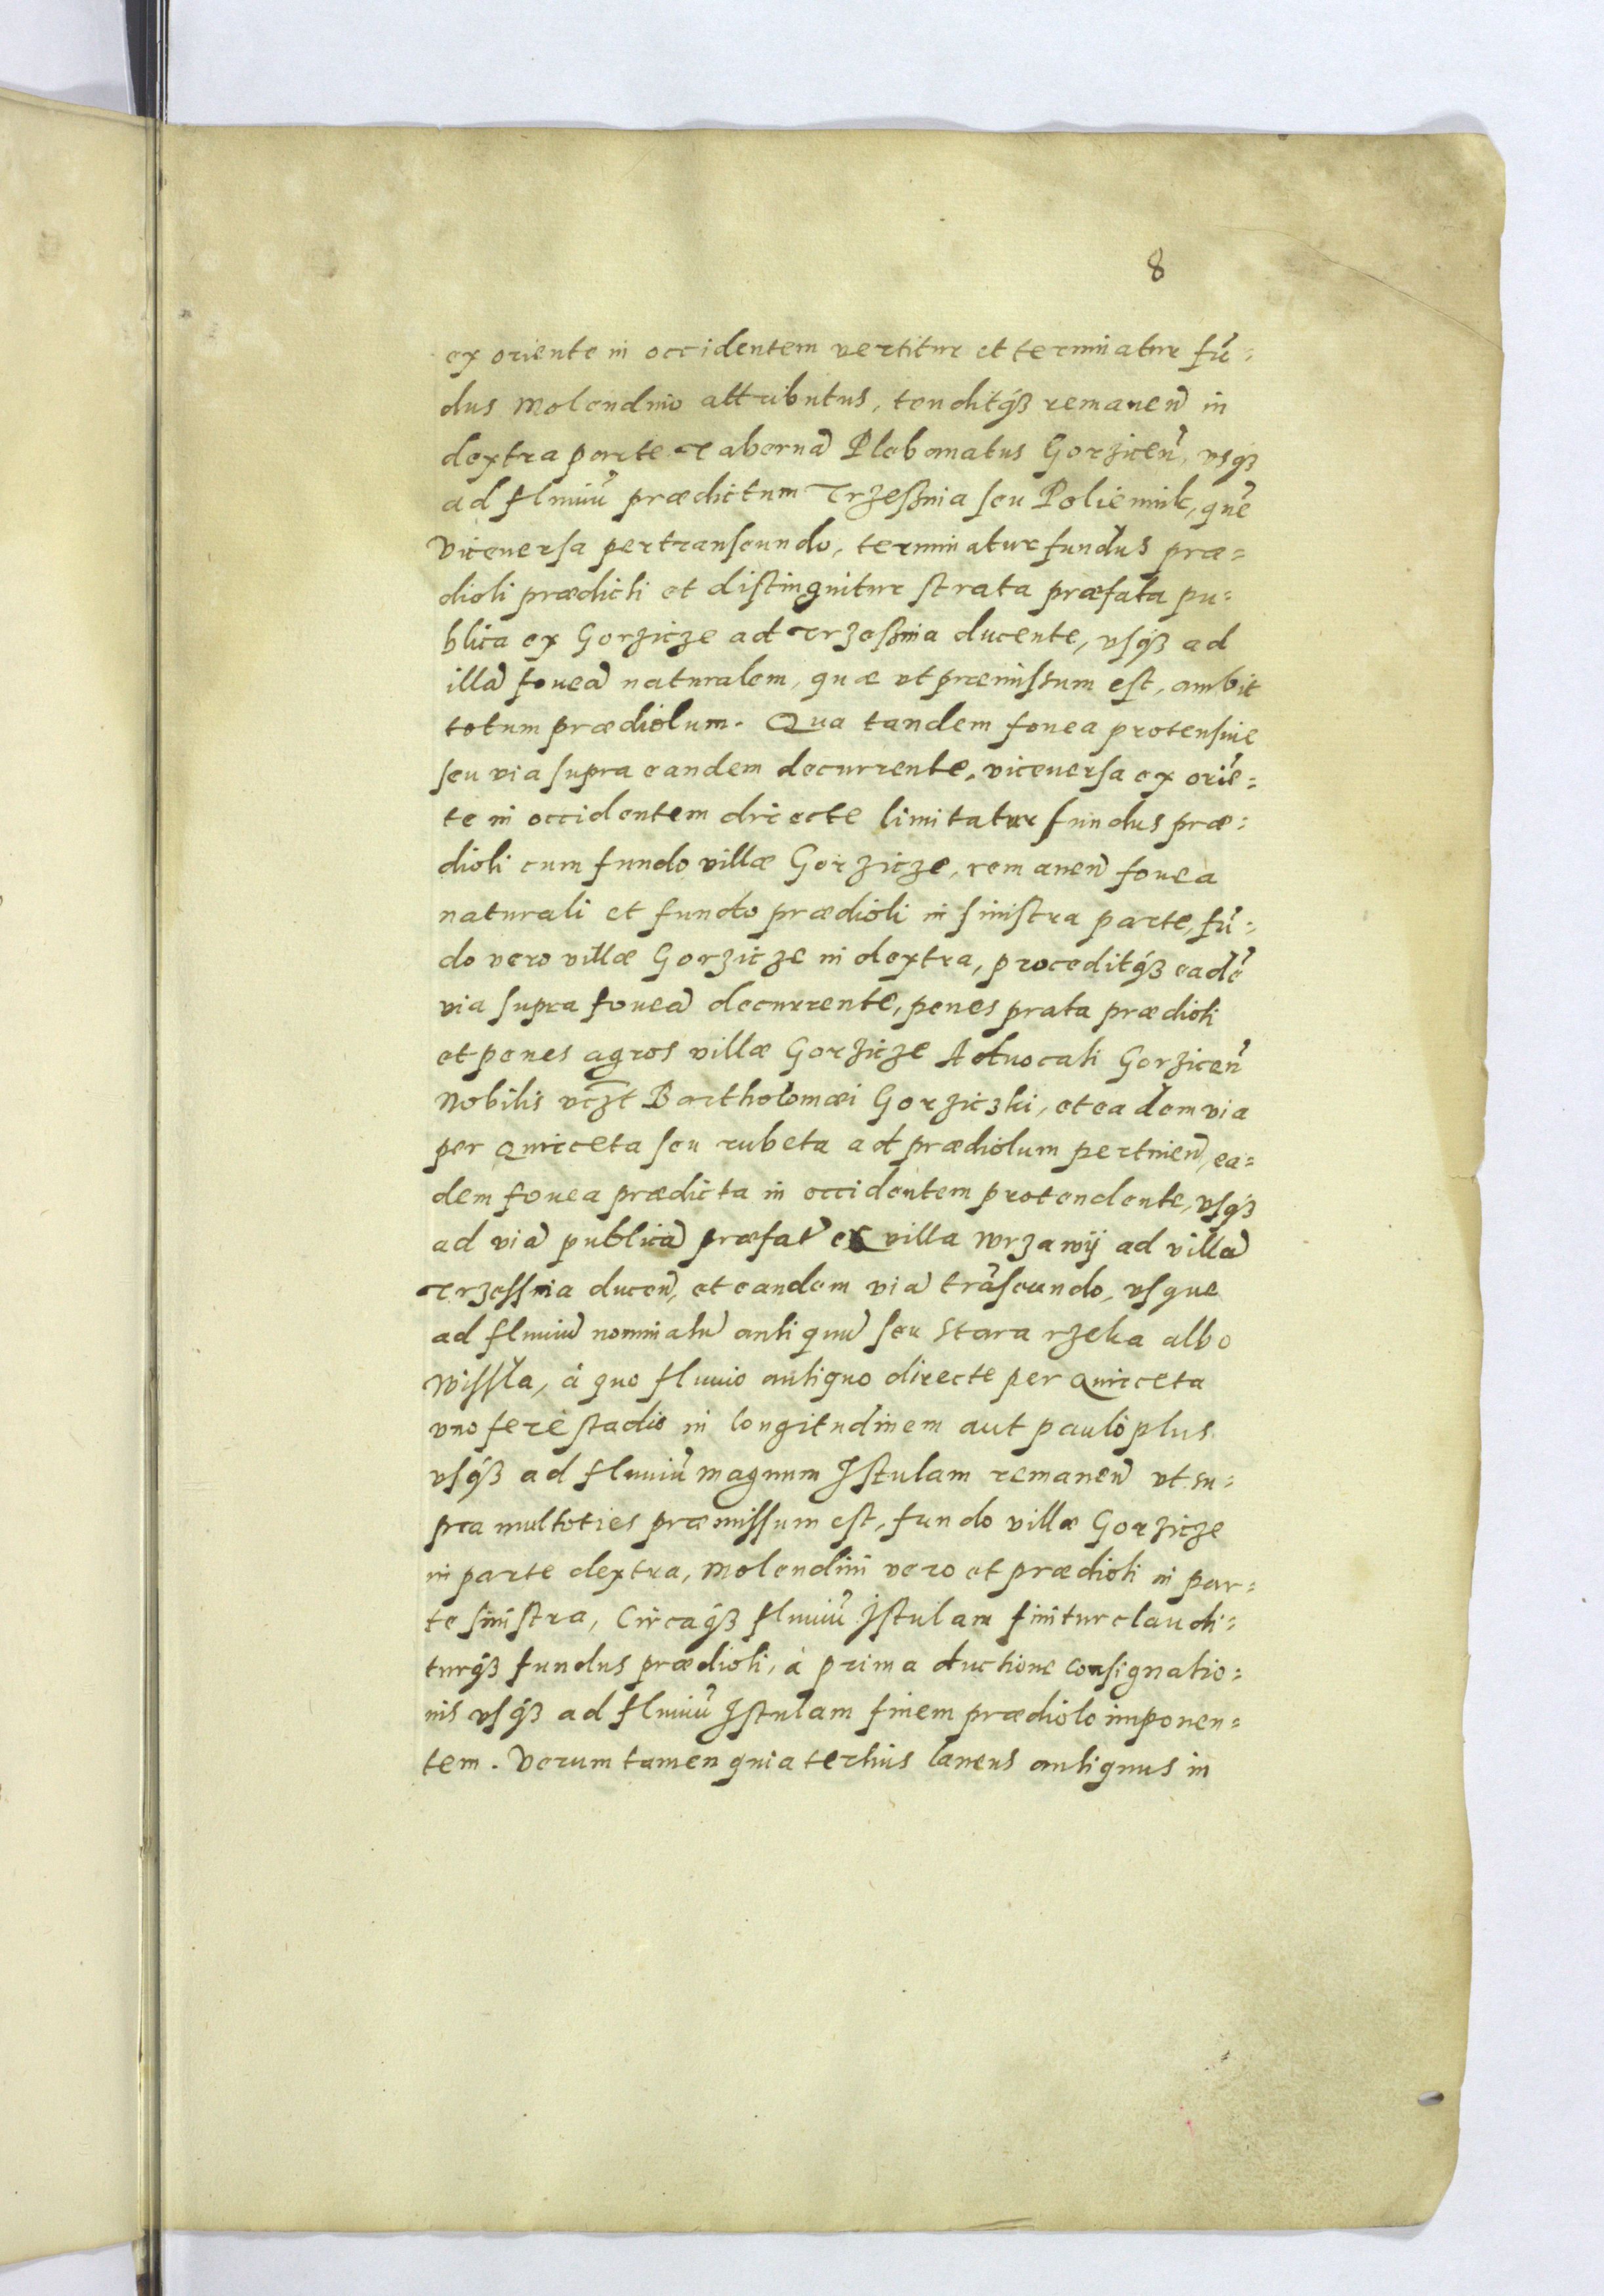 8
ex oriente in occidentem vertitur et terminatur fũ=
dus Molendino attributus, tenditq́ꝫ remanen̄ in
dextra parte Tabernã Plebanatus Gorzicen̄, vsq́ꝫ
ad fluuiũ prædictum Trzeßnia seu Poliennik, quẽ
viceuersa pertranseundo, terminatur fundus præ=
dioli prædicti et distinguitur strata præfata pu=
blica ex Gorzicze ad Trzeßnia ducente, vsq́ꝫ ad
illã foueã naturalem, quæ vt præmissum est, ambit
totum prædiolum. Qua tandem fouea protensiue
seu via supra eandem decurrente, viceuersa ex oriẽ=
te in occidentem directe limitatur fundus præ=
dioli cum fundo villæ Gorzicze, remanen̄ fouea
naturali et fundo prædioli in sinistra parte, fũ=
do vero villæ Gorzicze in dextra, proceditq́ꝫ eadẽ
via supra foueã decurrente, penes prata prædioli
et penes agros villæ Gorzicze Aduocati Gorzicen̄
Nobilis vc̄zt Bartholomæi Gorziczki, et eadem via
per Quirceta seu rubeta ad prædiolum pertinen̄, ea=
dem fouea prædicta in occidentem protendente, vsq́ꝫ
ad viã publicã præfat̄ ex villa Wrzawij ad villã
Trzessnia ducen̄, et eandem viã trãseundo, vsque
ad fluuiũ nominatũ antiquũ seu Stara rzeka albo
Wissla, à quo fluuio antiquo directe per Quirceta
vno ferè stadio in longitudinem aut paulò plus
vsq́ꝫ ad fluuiũ magnum Istulam remanen̄ vt su=
pra multoties præmissum est, fundo villæ Gorzicze
in parte dextra, Molendini vero et prædioli in par=
te sinistra, Circaq́ꝫ fluuiũ Istulam finitur claudi=
turq́ꝫ fundus prædioli, à prima ductione consignatio=
nis vsq́ꝫ ad fluuiũ Istulam finem prædiolo imponen=
tem. Verum tamen quia tertius laneus antiquus in